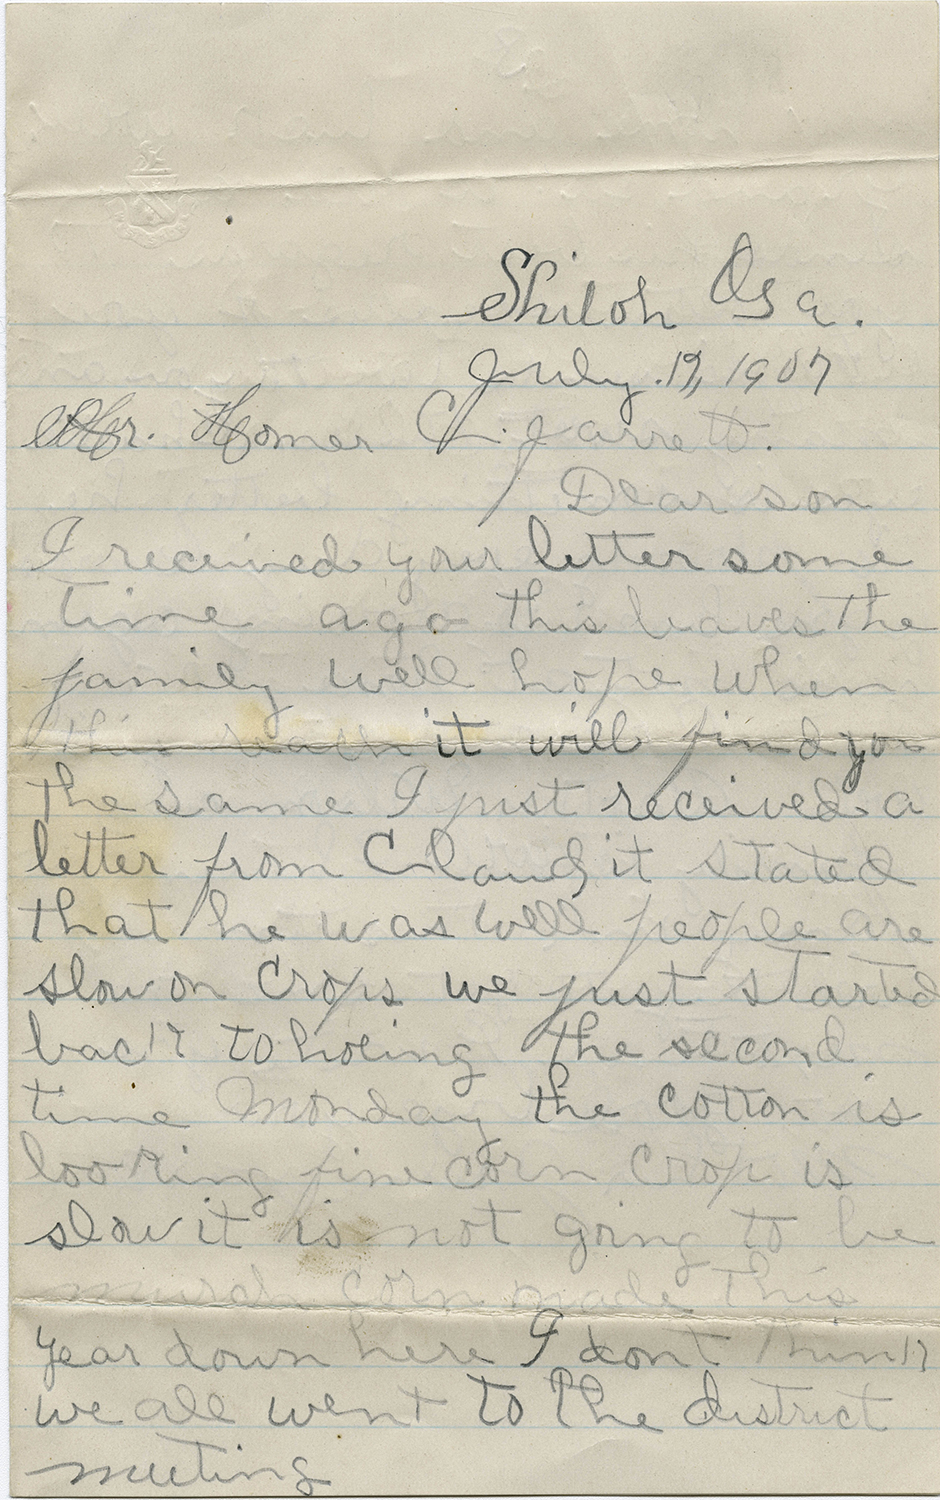 Shiloh Ga.
July. 19, 1907
Mr. Homer C. Jarrett.
Dear son
I received your letter some
time ago this leaves the
family well hope when
this reach it will find you
the same I just received a
letter from Claud it stated
that he was well people are
slow on crops we just started
back to hoeing the second
time Monday the cotton is
looking fine corn crop is
slow it is not going to be
much corn made this
year down here I dont think
we all went to the district
meeting